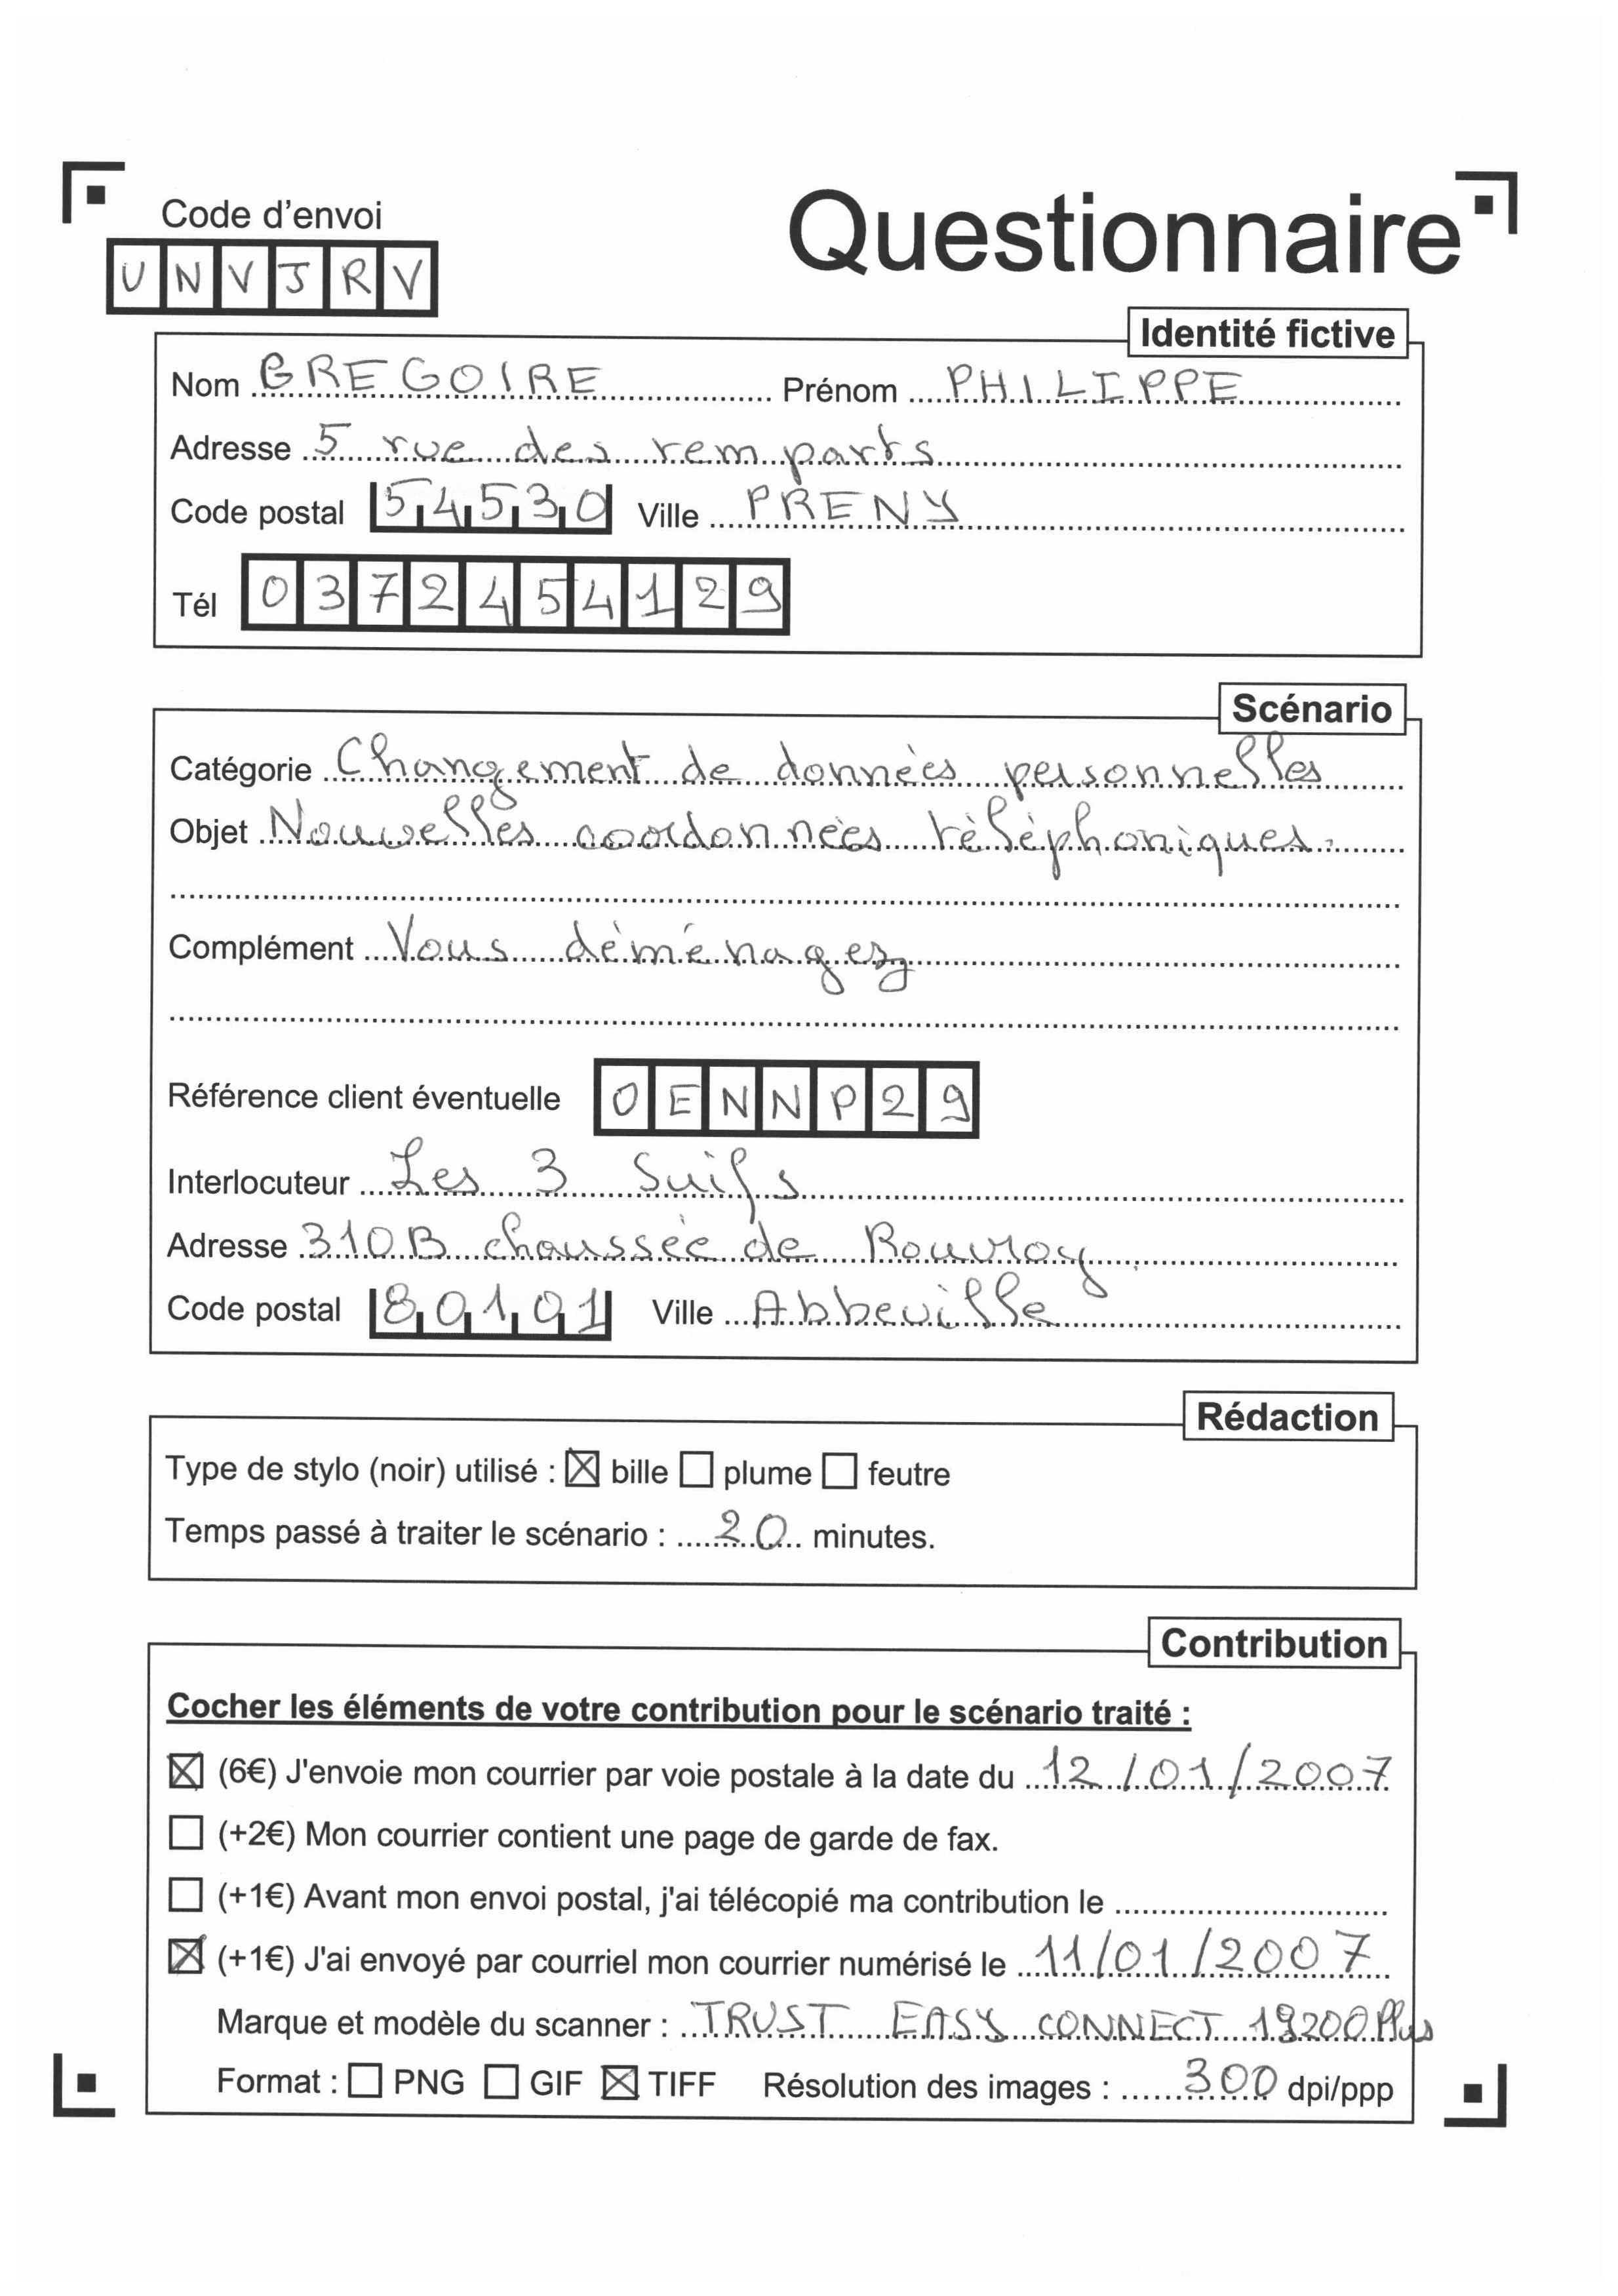 Code d'envoi
Questionnaire
UNVJRV
Identité fictive
Nom GREGOIRE Prénom PHILIPPE
Adresse 5 rue des remparts
Code postal 54530 Ville PRENY
Tél 0372454129
Scénario
Catégorie Changement de données personnelles
Objet Nouvelles coordonnées téléphoniques.
Complément Vous déménagez
Référence client éventuelle OENNP29
Interlocuteur Les 3 Suifs
Adresse 310B chaussée de Rouvroy
Code postal 80101 Ville Abbeville
Rédaction
Type de stylo (noir) utilisé : ☒ bille ☐ plume ☐ feutre
Temps passé à traiter le scénario : 20 minutes.
Contribution
Cocher les éléments de votre contribution pour le scénario traité :
☒ (6€) J'envoie mon courrier par voie postale à la date du 12/01/2007
☐ (+2€) Mon courrier contient une page de garde de fax.
☐ (+1€) Avant mon envoi postal, j'ai télécopié ma contribution le
☒ (+1€) J'ai envoyé par courriel mon courrier numérisé le 11/01/2007
Marque et modèle du scanner : TRUST EASY CONNECT 19200 Plus
Format : ☐ PNG ☐ GIF ☒ TIFF Résolution des images : 300 dpi/ppp